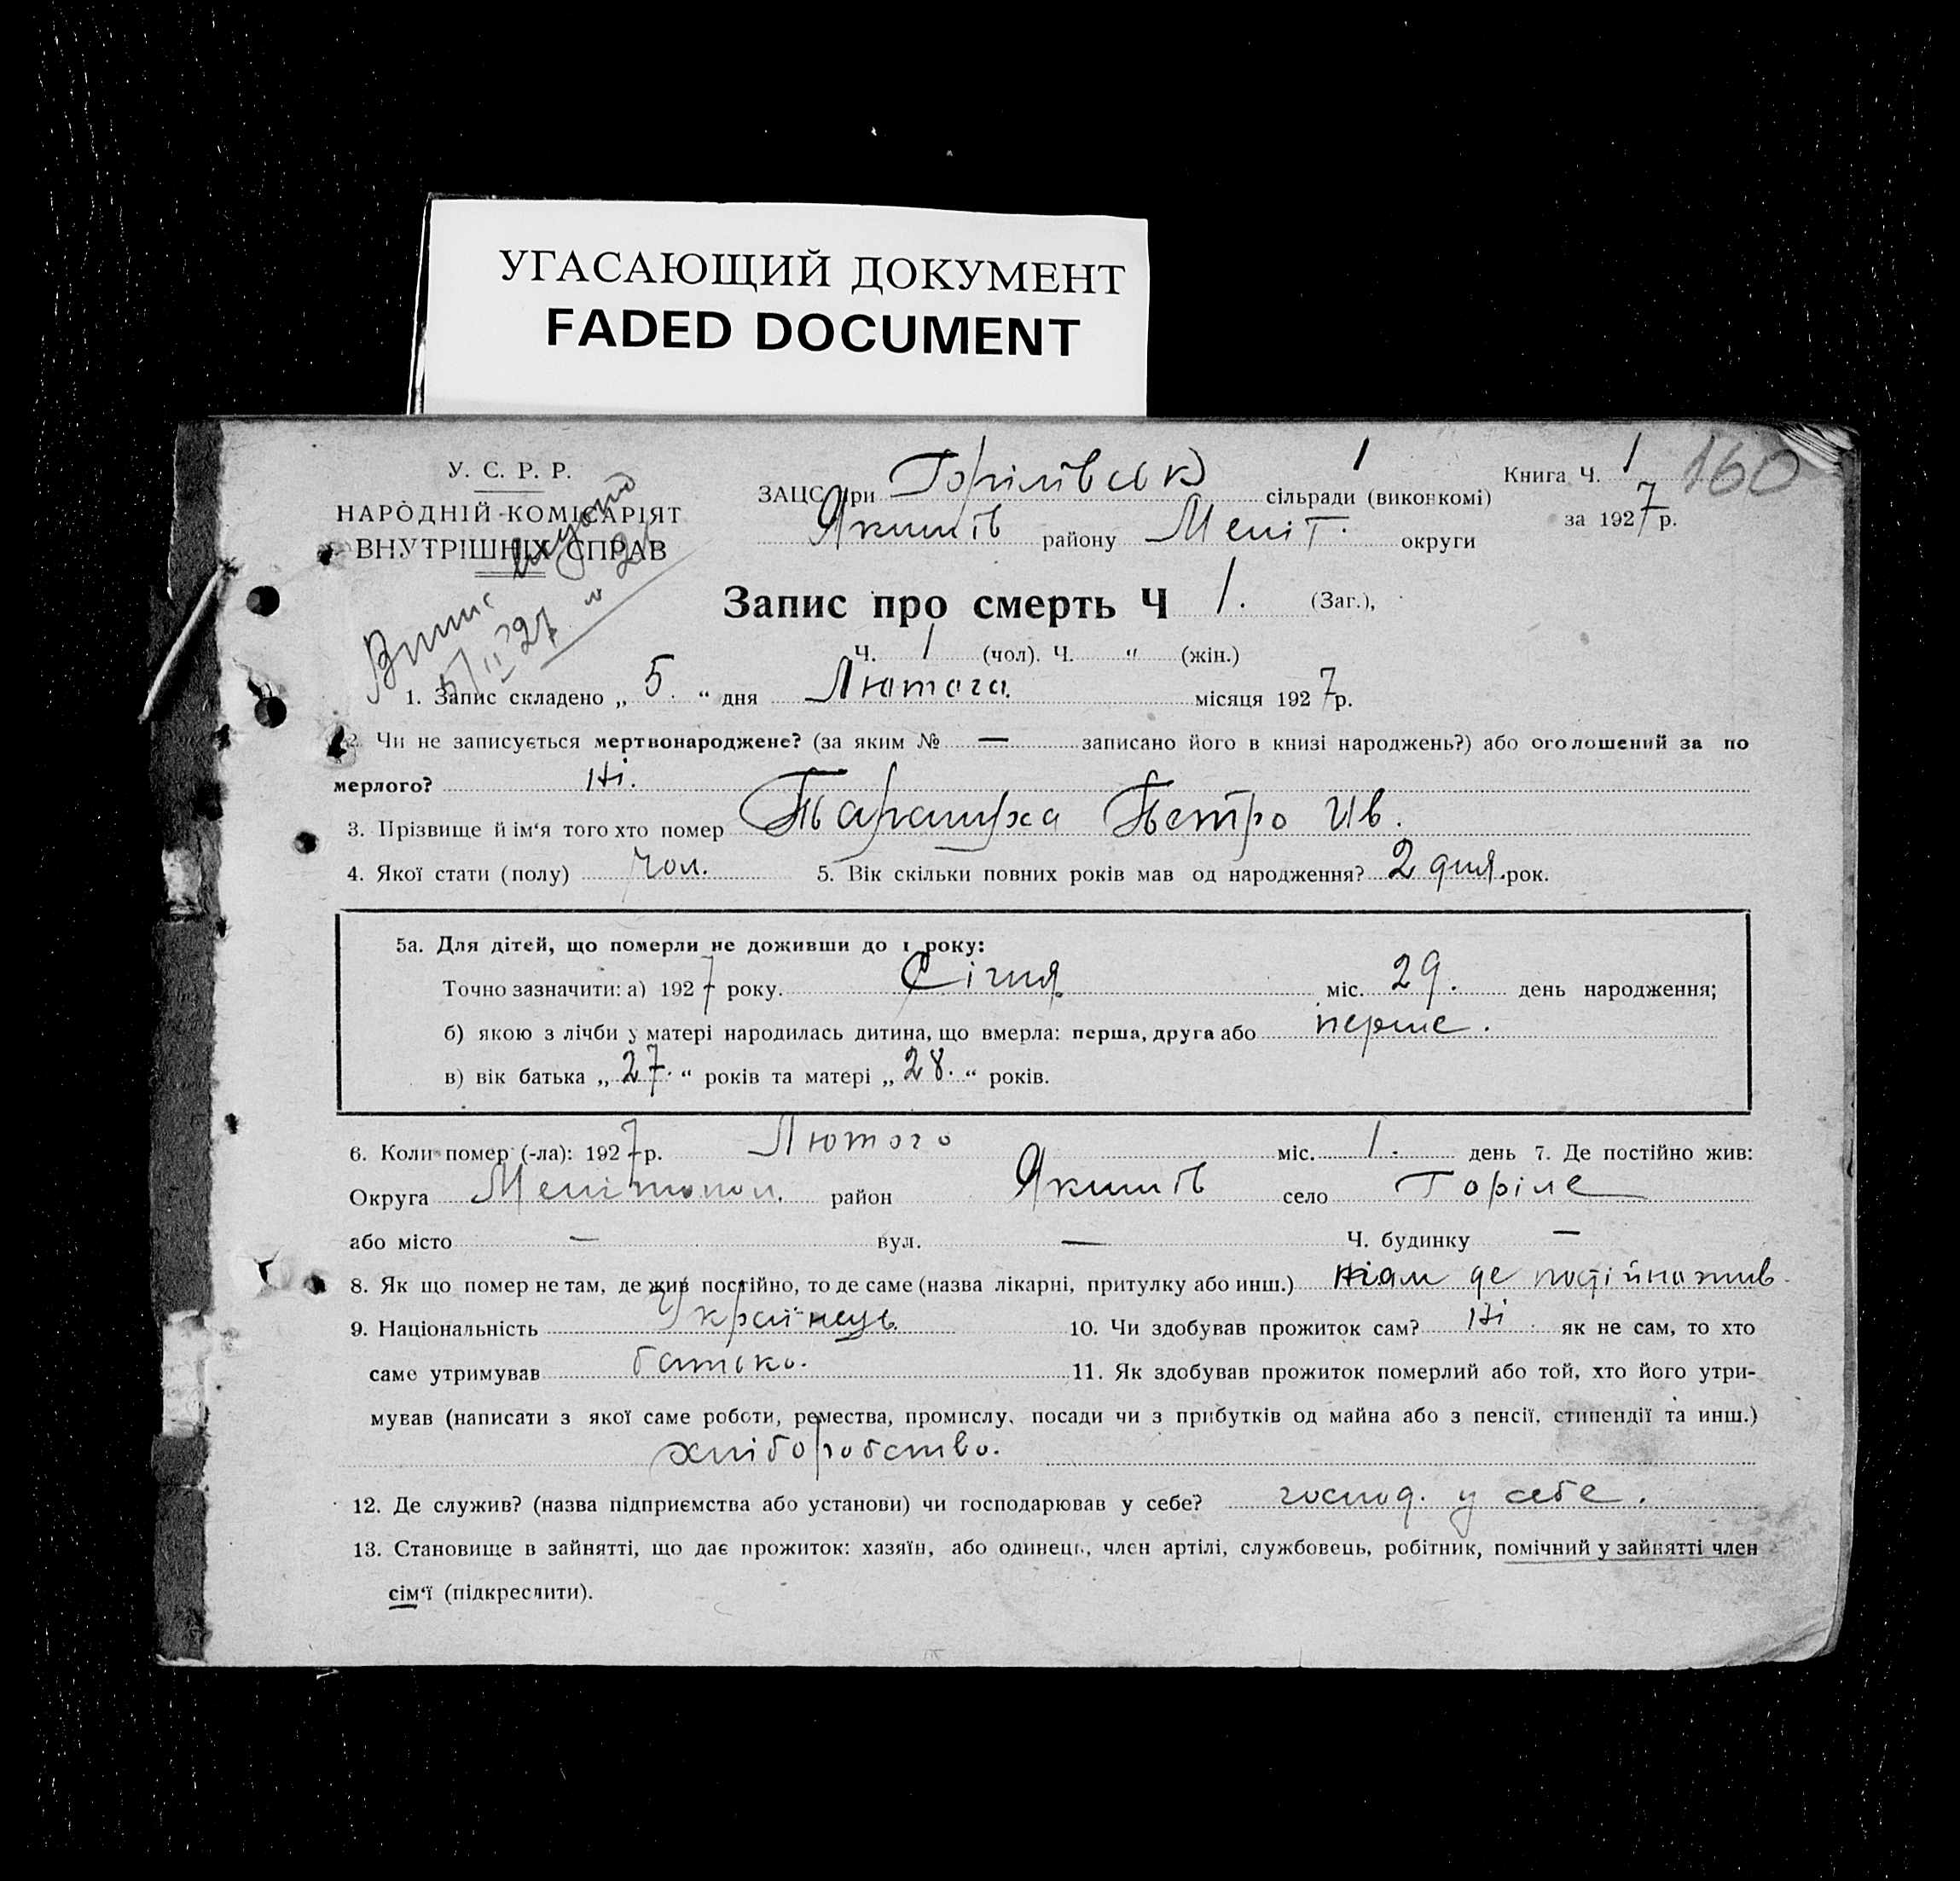 УГАСАЮЩИЙ ДОКУМЕНТ
FADED DOCUMENT
У. С. Р. Р.
НАРОДНІЙ КОМІСАРІЯТ
ВНУТРІШНІХ СПРАВ
Випис видано
5/II 27
ЗАЦС при Горілівськ сільради (виконкомі) 1
Якимів району Меліт. округи
Книга Ч. 1
160
за 1927 р.
Запис про смерть Ч 1. (Заг.),
Ч. 1 (чол). Ч. " (жін.)
1. Запис складено „ 5. “ дня Лютага місяця 1927 р.
2. Чи не записується мертвонароджене? (за яким № — записано його в книзі народжень?) або оголошений за по
мерлого? Ні.
3. Прізвище й ім‘я того хто помер Парашуха Петро Ив.
4. Якої стати (полу) чол. 5. Вік скільки повних років мав од народження? 2 дня. рок.
5а. Для дітей, що померли не доживши до 1 року:
Точно зазначити: а) 1927 року. Січня міс. 29. день народження;
б) якою з лічби у матері народилась дитина, що вмерла: перша, друга або перше.
в) вік батька „ 27. “ років та матері „ 28. “ років.
6. Коли помер (-ла): 1927 р. Лютого міс. 1. день 7. Де постійно жив:
Округа Мелітопол. район Якимів село Горіле
або місто — вул. — Ч. будинку —
8. Як що помер не там, де жив постійно, то де саме (назва лікарні, притулку або инш.) там де постійно жив
9. Національність Українець 10. Чи здобував прожиток сам? Ні. як не сам, то хто
саме утримував батько. 11. Як здобував прожиток померлий або той, хто його утри-
мував (написати з якої саме роботи, ремества, промислу, посади чи з прибутків од майна або з пенсії, стипендії та инш.)
хліборобство.
12. Де служив? (назва підприємства або установи) чи господарював у себе? господ. у себе.
13. Становище в зайнятті, що дає прожиток: хазяїн, або одинець, член артілі, службовець, робітник, помічний у зайнятті член
сім‘ї (підкреслити).